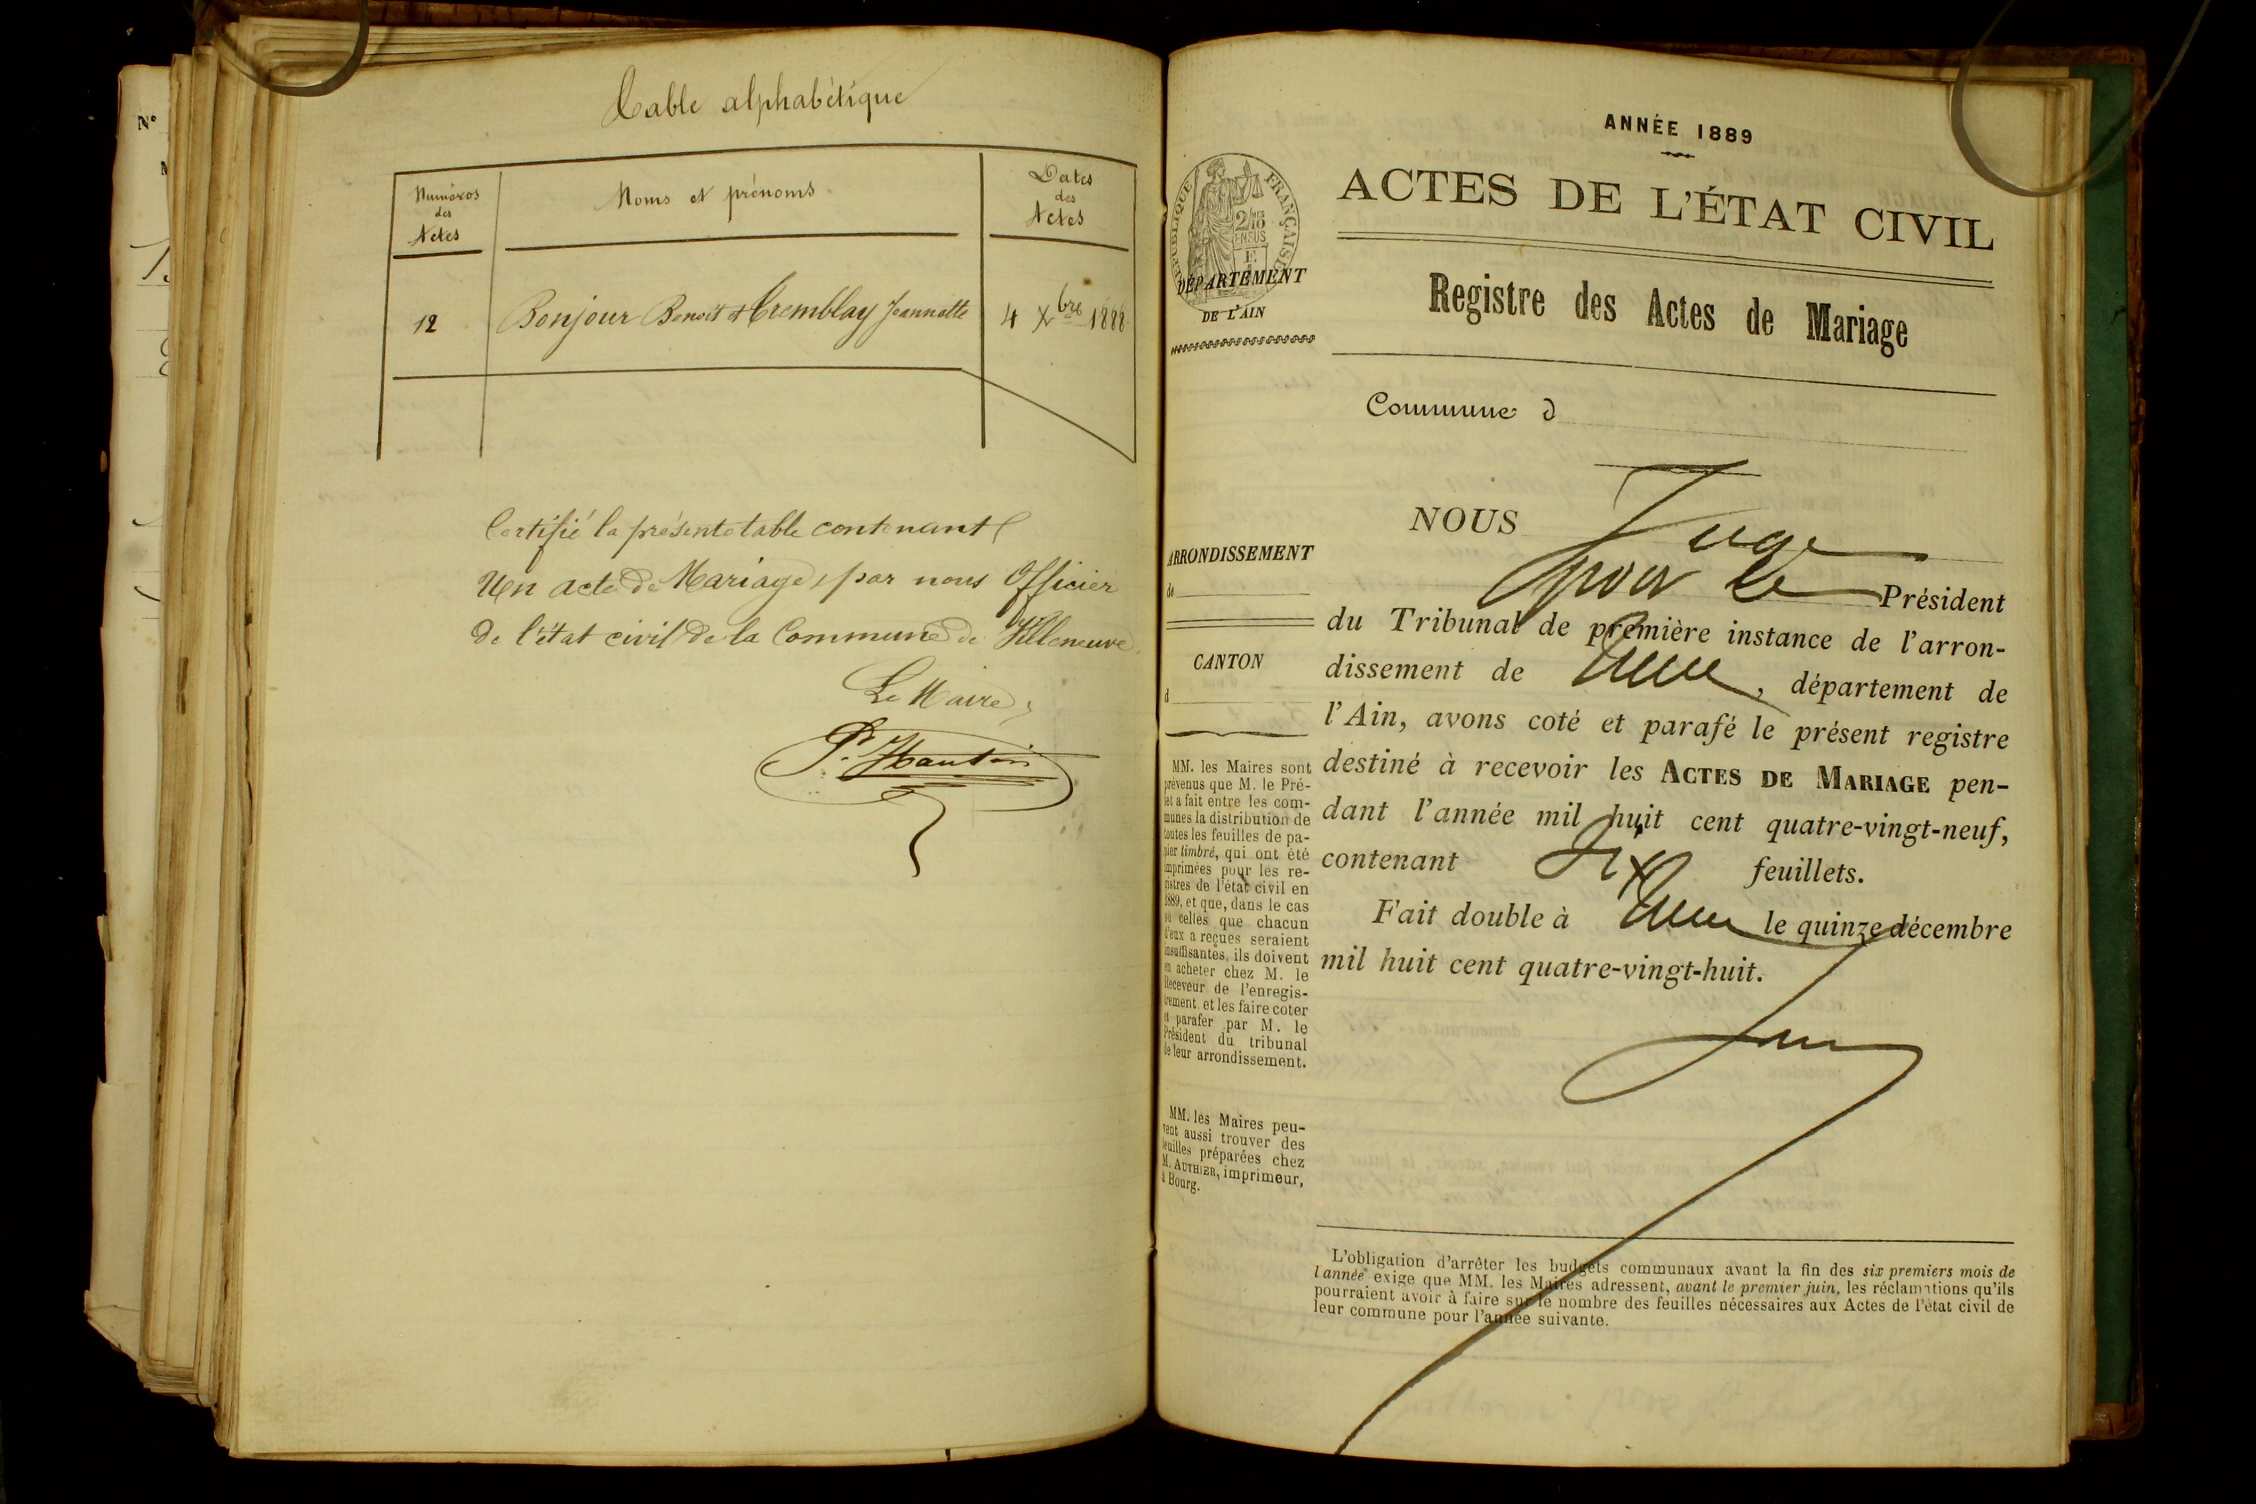 Table alphabétique
Numéros
des
Actes
Noms et prénoms
Dates
des
Actes
12
Bonjour Benoit & Tremblay Jeannette
4 Xbre 1888
Certifié la présente table contenant
Un acte de Mariage, par nous Officier
de l'état civil de la Commune de Villeneuve.
Le Maire,
ANNÉE 1889
ACTES DE L'ÉTAT CIVIL
RÉPUBLIQUE FRANÇAISE
DÉPARTEMENT
DE L'AIN
Registre des Actes de Mariage
Commune d
NOUS Juge
pour le Président
du Tribunal de première instance de l'arron-
dissement de , département de
l'Ain, avons coté et parafé le présent registre
destiné à recevoir les ACTES DE MARIAGE pen-
dant l'année mil huit cent quatre-vingt-neuf,
contenant feuillets.
Fait double à le quinze décembre
mil huit cent quatre-vingt-huit.
ARRONDISSEMENT
de
CANTON
d
MM. les Maires sont
prévenus que M. le Pré-
fet a fait entre les com-
munes la distribution de
toutes les feuilles de pa-
pier timbré, qui ont été
imprimées pour les re-
gistres de l'état civil en
1889, et que, dans le cas
où celles que chacun
d'eux a reçues seraient
insuffisantes, ils doivent
en acheter chez M. le
Receveur de l'enregis-
trement et les faire coter
et parafer par M. le
Président du tribunal
de leur arrondissement.
MM. les Maires peu-
vent aussi trouver des
feuilles préparées chez
M. AUTHIER, imprimeur,
à Bourg.
L'obligation d'arrêter les budgets communaux avant la fin des six premiers mois de
l'année exige que MM. les Maires adressent, avant le premier juin, les réclamations qu'ils
pourraient avoir à faire sur le nombre des feuilles nécessaires aux Actes de l'état civil de
leur commune pour l'année suivante.